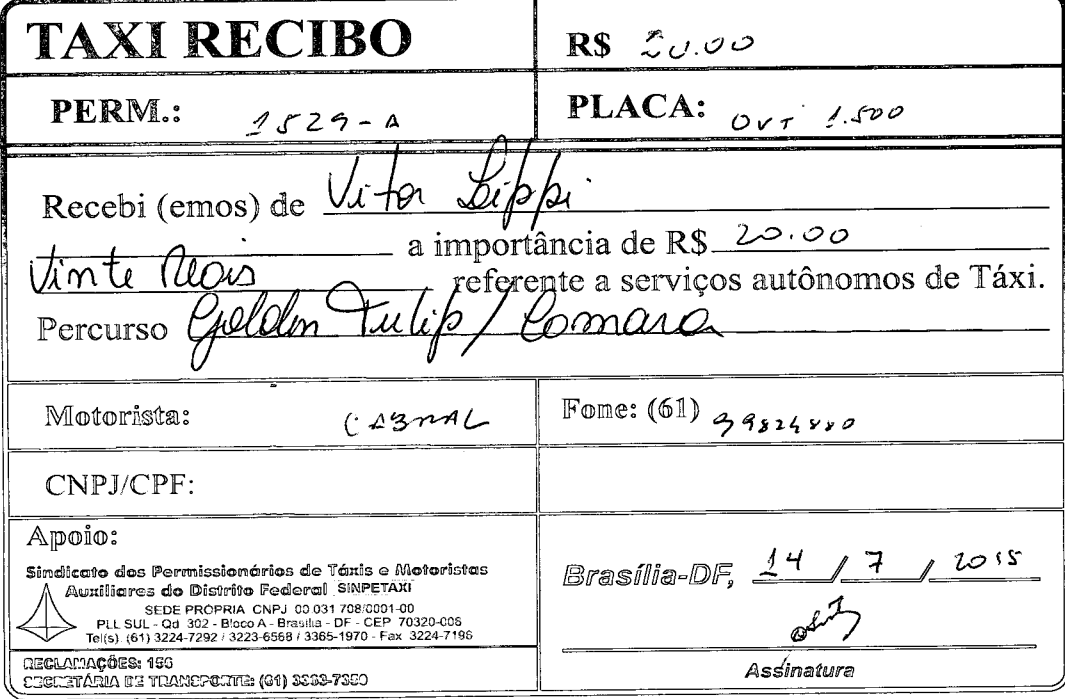 TAXI RECIBO
R$ 20.00
PERM.: 1529-A
PLACA: OVT 1.500
Recebi (emos) de Vitor Lippi
a importância de R$ 20.00
Vinte Reais referente a serviços autônomos de Táxi.
Percurso Golden Tulip / Camara
Motorista: CABRAL
Fone: (61)
CNPJ/CPF:
Apoio:
Sindicato dos Permissionários de Táxis e Motoristas
Auxiliares do Distrito Federal SINPETAXI
SEDE PRÓPRIA CNPJ 00 031 708/0001-00
PLL SUL - Qd 302 - Bloco A - Brasília - DF - CEP 70320-006
Tel(s). (61) 3224-7292 / 3223-6568 / 3365-1970 - Fax 3224-7196
RECLAMAÇÕES: 156
SECRETÁRIA DE TRANSPORTE: (61)
Brasília-DF, 14 / 7 / 2015
Assinatura